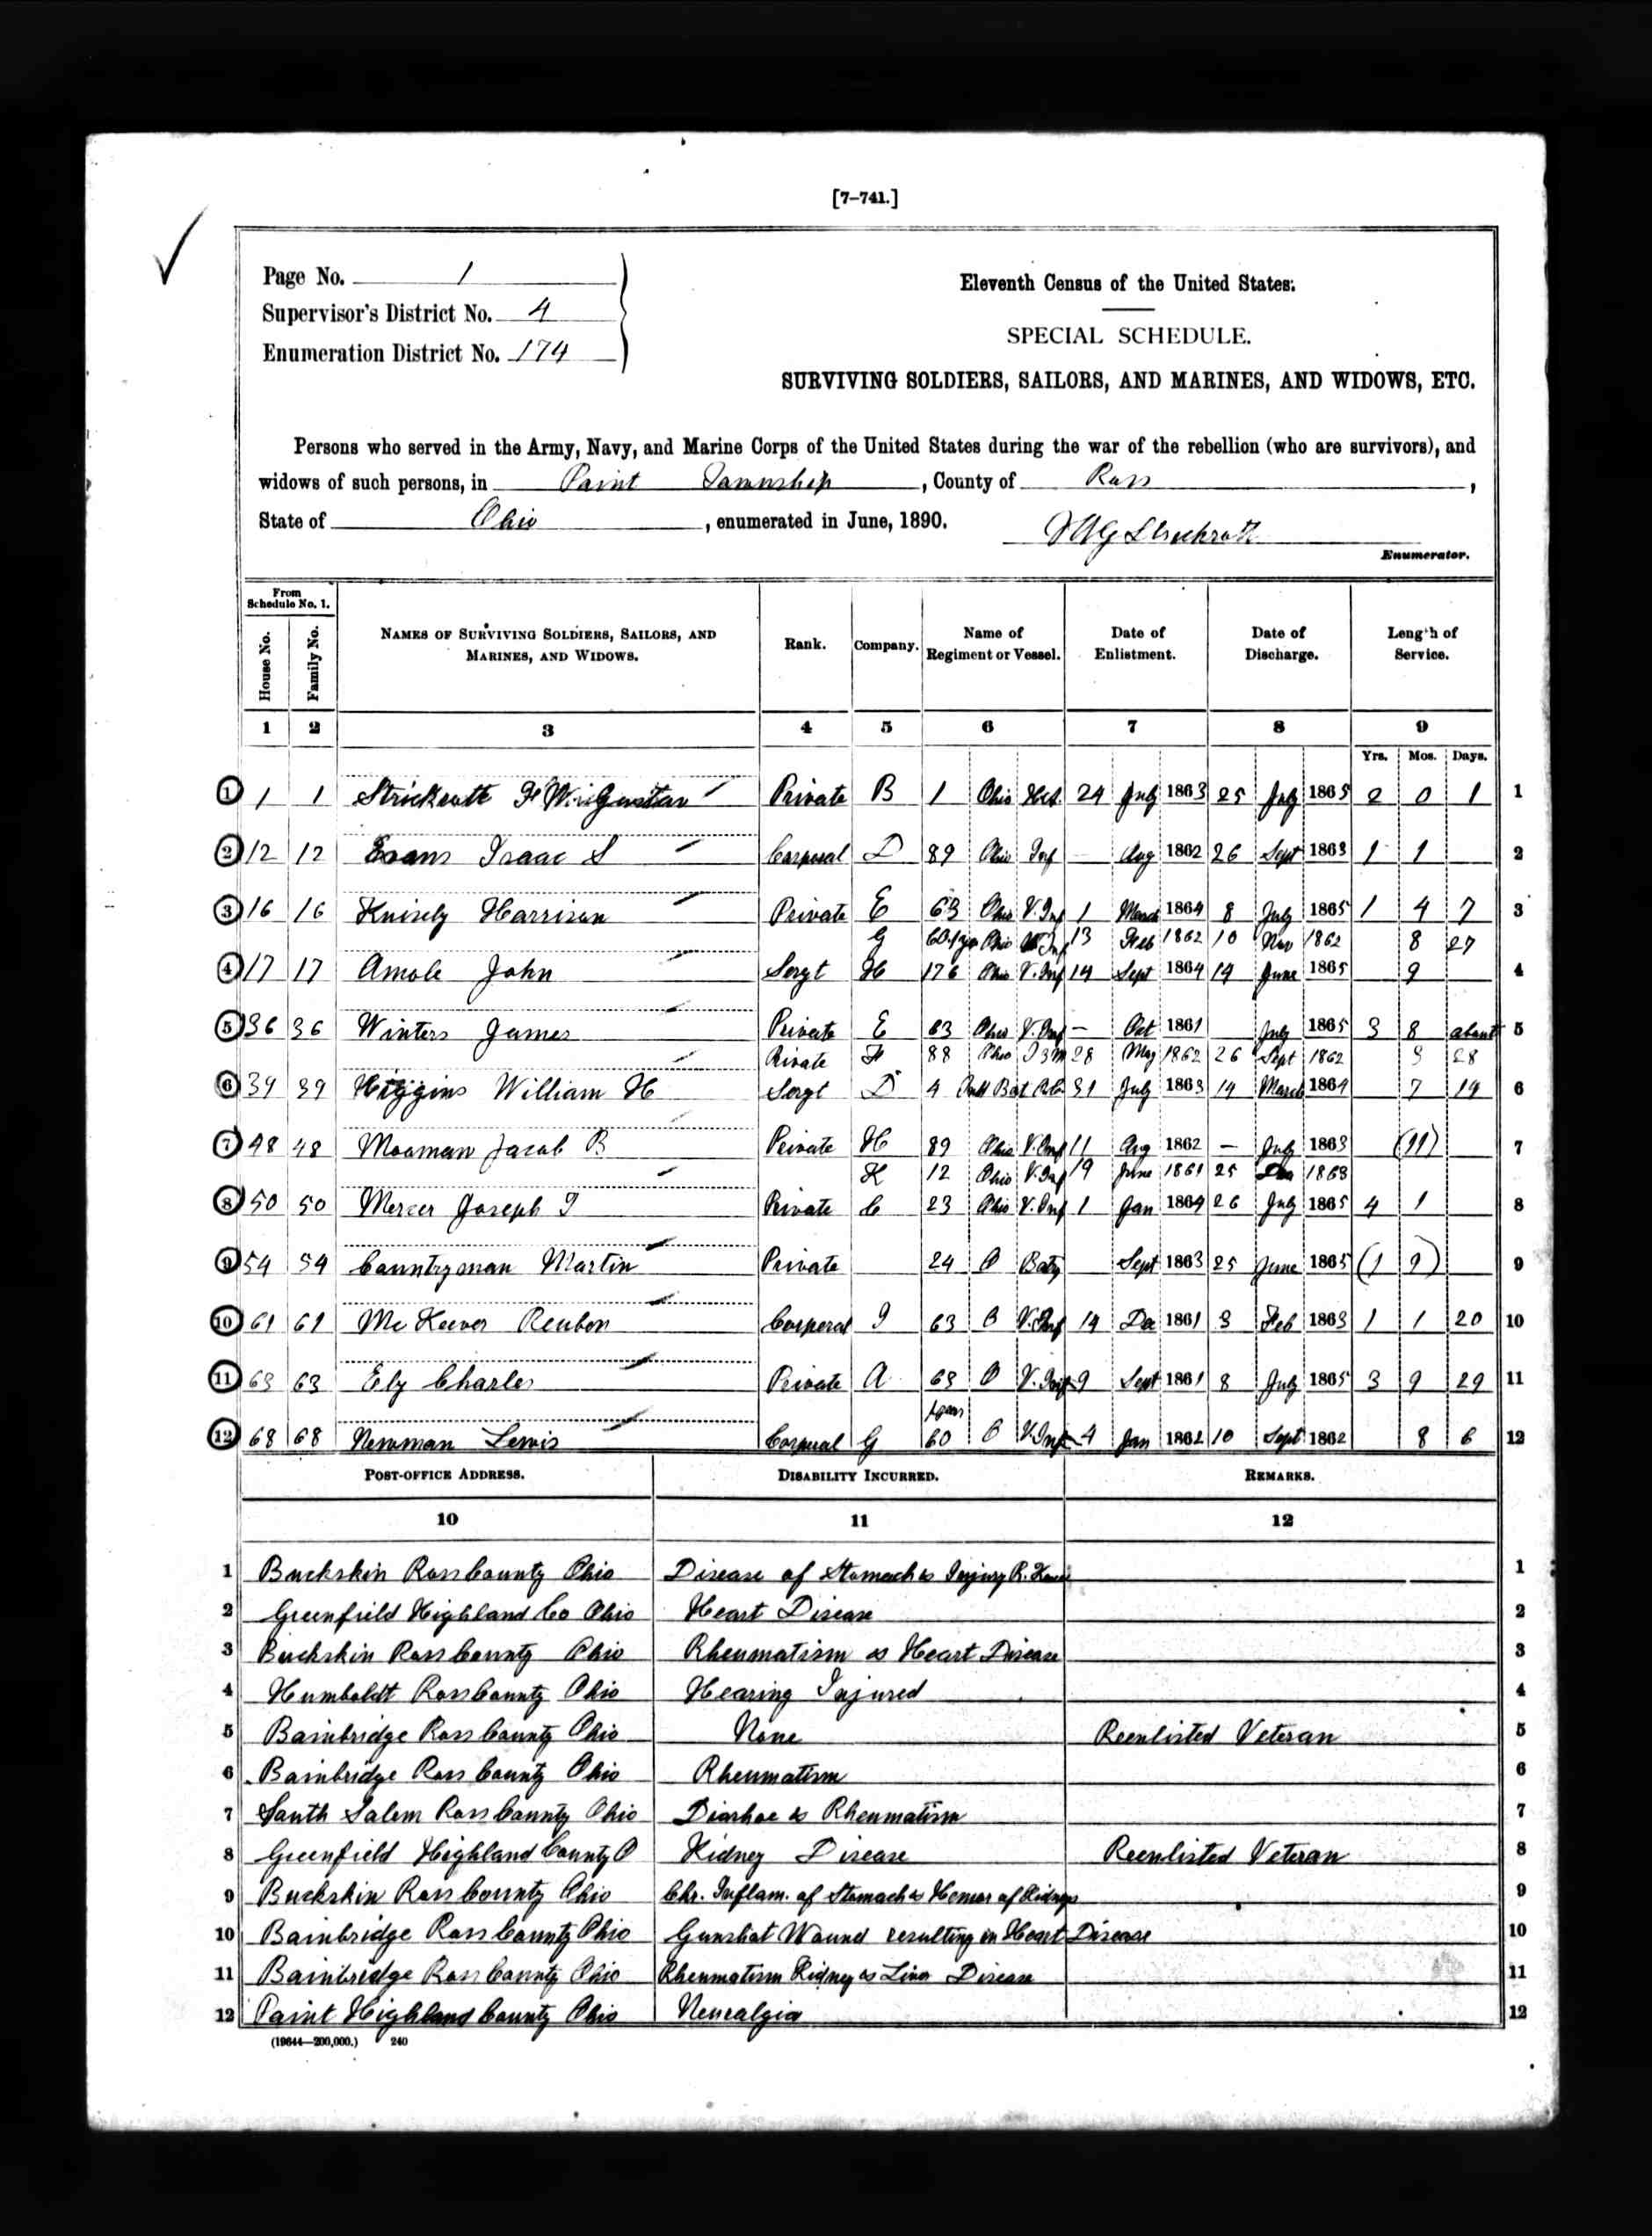 [7–741.]
Page No. 1
Supervisor's District No. 4
Enumeration District No. 174
Eleventh Census of the United States.
SPECIAL SCHEDULE.
SURVIVING SOLDIERS, SAILORS, AND MARINES, AND WIDOWS, ETC.
Persons who served in the Army, Navy, and Marine Corps of the United States during the war of the rebellion (who are survivors), and
widows of such persons, in Paint Township, County of Ross,
State of Ohio, enumerated in June, 1890.
Enumerator.
From Schedule No. 1. House No. Family No. NAMES OF SURVIVING SOLDIERS, SAILORS, AND MARINES, AND WIDOWS. Rank. Company. Name of Regiment or Vessel. Date of Enlistment. Date of Discharge. Length of Service.
1 2 3 4 5 6 7 8 9
Yrs. Mos. Days.
1 1 1 Private B 1 Ohio 24 July 1863 25 July 1865 2 0 1 1
2 12 12 Evans Isaac S Corporal D 89 Ohio Inf — Aug 1862 26 Sept 1863 1 1 2
3 16 16 Knisely Harrison Private E 63 Ohio V. Inf 1 March 1864 8 July 1865 1 4 7 3
G Ohio Inf 13 Feb 1862 10 Nov 1862 8 27
4 17 17 Amole John Sergt H 176 Ohio V. Inf 14 Sept 1864 14 June 1865 9 4
5 36 36 Winters James Private E 63 Ohio V. Inf — Oct 1861 July 1865 3 8 about 5
Private 88 Ohio 28 May 1862 26 Sept 1862 3 28
6 39 39 Higgins William H Sergt D 4 Bat 31 July 1863 14 March 1864 7 14 6
7 48 48 Mooman Jacob B Private H 89 Ohio V. Inf 11 Aug 1862 — July 1863 (11) 7
K 12 Ohio V. Inf 19 June 1861 25 1863
8 50 50 Mercer Joseph Private C 23 Ohio V. Inf 1 Jan 1864 26 July 1865 4 1 8
9 54 54 Countryman Martin Private 24 O Baty Sept 1863 25 June 1865 (1 9) 9
10 61 61 McKeever Reuben Corporal I 63 O V. Inf 14 Dec 1861 3 Feb 1863 1 1 20 10
11 63 63 Ely Charles Private A 63 O V. Inf 9 Sept 1861 8 July 1865 3 9 29 11
12 68 68 Newman Lewis Corporal G 60 O V Inf 4 Jan 1862 10 Sept 1862 8 6 12
POST-OFFICE ADDRESS. DISABILITY INCURRED. REMARKS.
10 11 12
1 Buckskin Ross County Ohio Disease of Stomach & Injury R. Knee 1
2 Greenfield Highland Co Ohio Heart Disease 2
3 Buckskin Ross County Ohio Rheumatism & Heart Disease 3
4 Humboldt Ross County Ohio Hearing Injured 4
5 Bainbridge Ross County Ohio None Reenlisted Veteran 5
6 Bainbridge Ross County Ohio Rheumatism 6
7 South Salem Ross County Ohio Diarhoe & Rheumatism 7
8 Greenfield Highland County O Kidney Disease Reenlisted Veteran 8
9 Buckskin Ross County Ohio Chr. Inflam. of Stomach & of Kidneys 9
10 Bainbridge Ross County Ohio Gunshot Wound resulting in Heart Disease 10
11 Bainbridge Ross County Ohio Rheumatism Kidney & Liver Disease 11
12 Paint Highland County Ohio Neuralgia 12
(19644—200,000.) 240